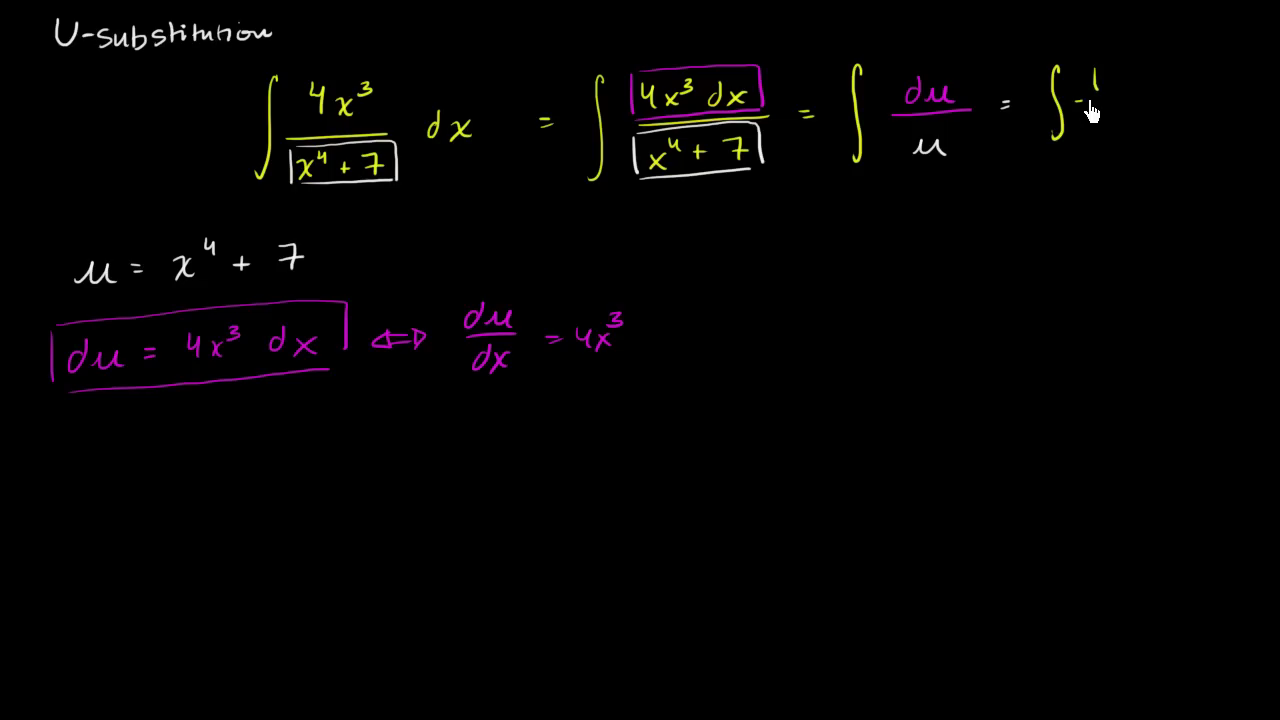 U-substitution
∫ 4x³/(x⁴ + 7) dx = ∫ 4x³ dx/(x⁴ + 7) = ∫ du/u = ∫ 1
u = x⁴ + 7
du = 4x³ dx ⇔ du/dx = 4x³